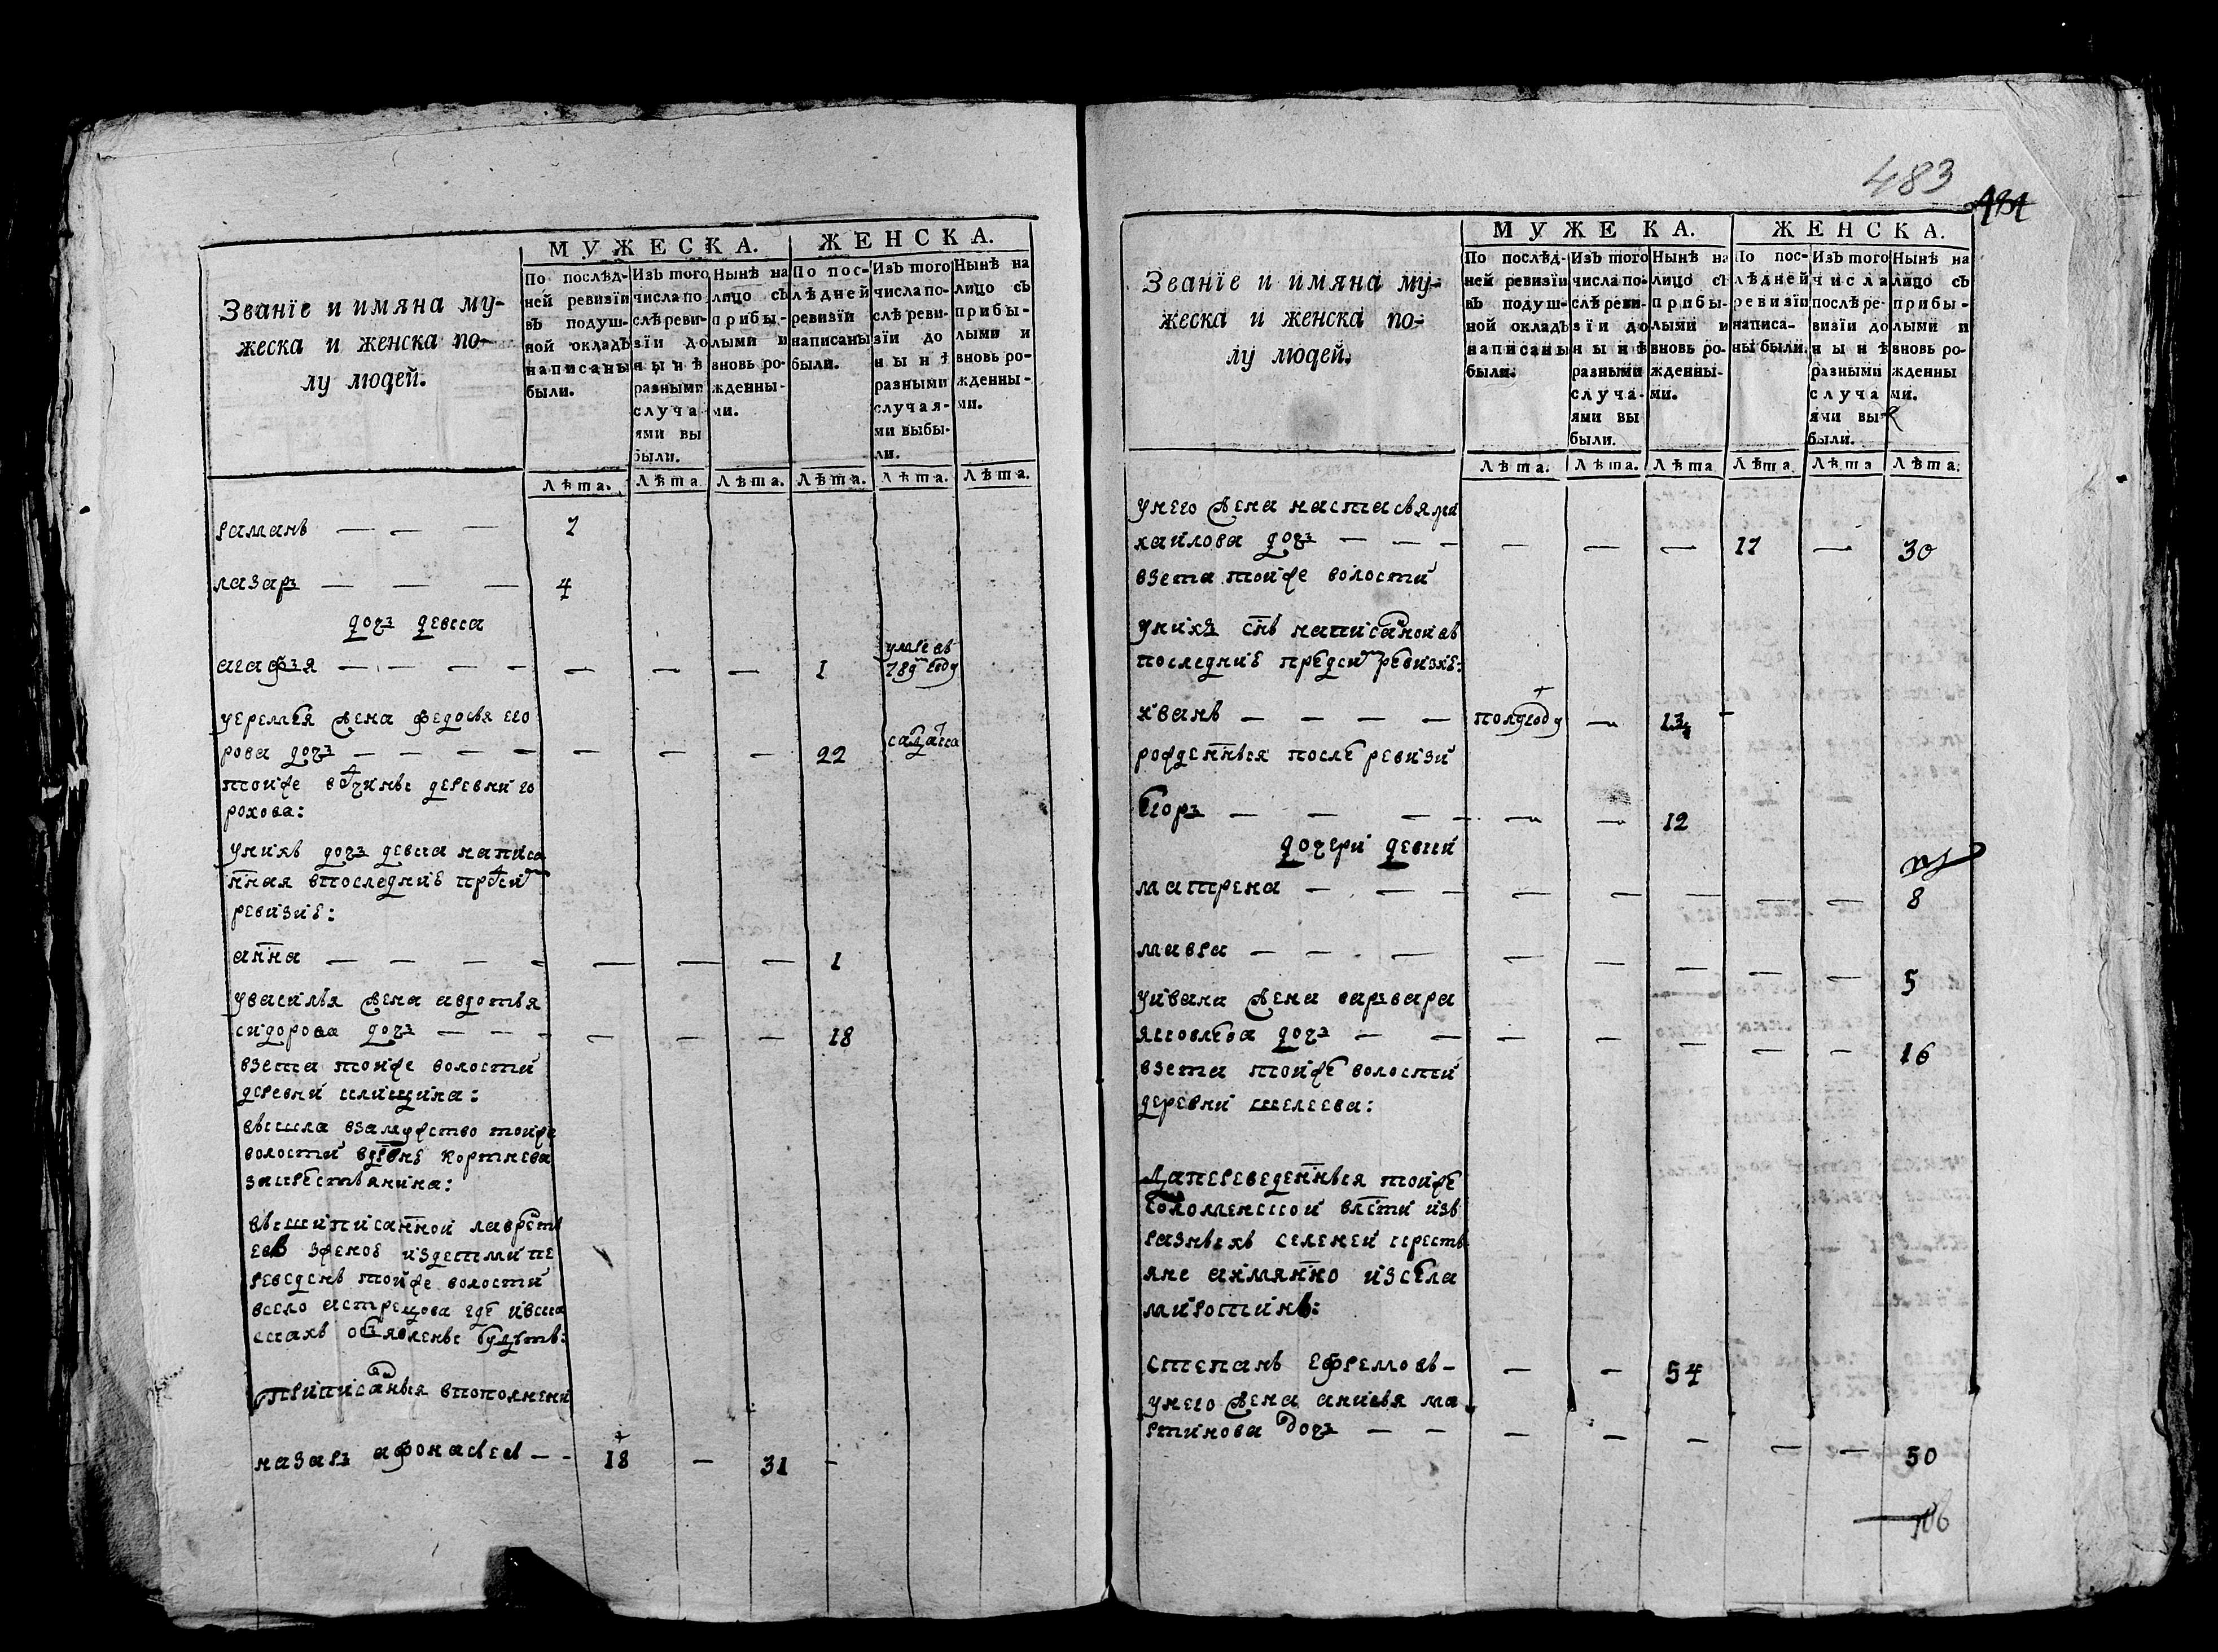 МУЖЕСКА. ЖЕНСКА.
Званїе и имяна му-
жеска и женска по-
лу людей.
По послѣд-
ней ревизїи
въ подуш-
ной окладъ
написаны
были.
Изъ того
числа по
слѣ реви-
зїи до
нынѣ
разными
случа-
ями вы
были.
Нынѣ на
лицо съ
прибы-
лыми и
вновь ро-
жденны-
ми.
По пос-
лѣдней
ревизїи
написаны
были.
Изъ того
числа по-
слѣ реви-
зїи до
нынѣ
разными
случая-
ми выбы-
ли.
Нынѣ на
лицо съ
прибы-
лыми и
вновь ро-
жденны-
ми.
Лѣта. Лѣта Лѣта. Лѣта. Лѣта. Лѣта.
раманъ — — — 7
лазаръ — — — 4
дочь девка
агафья — — — — — — — 1
умре въ
789м году
уеремея жена федосья его
рова дочь — — — — — — — 22
тойже вотчины деревни го
рохова:
унихъ дочь девка написа
нная впоследние пред сим
ревизие:
анна — — — — — — — 1
увасилья жена авдотья
сидорова дочь — — — — — — 18
взета тойже волости
деревни клищина:
вышла взамужство тойже
волости вдевне кортнева
закрестьянина:
вышиписанной лаврент
еев зженое издетми пе
реведенъ тойже волости
всело астрецова где ивска
скахъ объявлены будутъ:
приписаныя впополнени
назаръ афонасьев — - 18 — 31 -
483
МУЖЕ КА. ЖЕНСКА.
Званїе и имяна му-
жеска и женска по-
лу людей.
По послѣд-
ней ревизїи
въ подуш-
ной окладъ
написаны
были.
Изъ того
числа по-
слѣ реви-
зїи до
нынѣ
разными
случа-
ями вы
были.
Нынѣ на
лицо съ
прибы-
лыми и
вновь ро-
жденны-
ми.
По пос-
лѣдней
ревизїи
написа-
ны были.
Изъ того
числа
послѣ ре-
визїи до
нынѣ
разными
случа
ями вы
были.
Нынѣ на
лицо съ
прибы-
лыми и
вновь ро-
жденны
ми.
Лѣта. Лѣта. Лѣта Лѣта. Лѣта Лѣта.
унего жена настасья ми
хайлова дочь — — — — — — 17 — 30
взета тойже волости
унихъ снъ написаной въ
последние пред сим ревизие:
иванъ — — — — полугоду — 13
рожденныя после ревизи
Егоръ — — — — — — 12
дочери девки
матрена — — — — — — — — 8
мавра — — — — — — — — 5
уивана жена варвара
яковлева дочь — — — — — — — 16
взета тойже волости
деревни шелеева:
Дапереведенныя тойже
коломенской влсти изъ
разныхъ селеней кресть
яне аимянно изсела
миротинъ:
степанъ ефремовъ — — — 54
унего жена анисья ма
ртинова дочь — — — — — — — 50
106